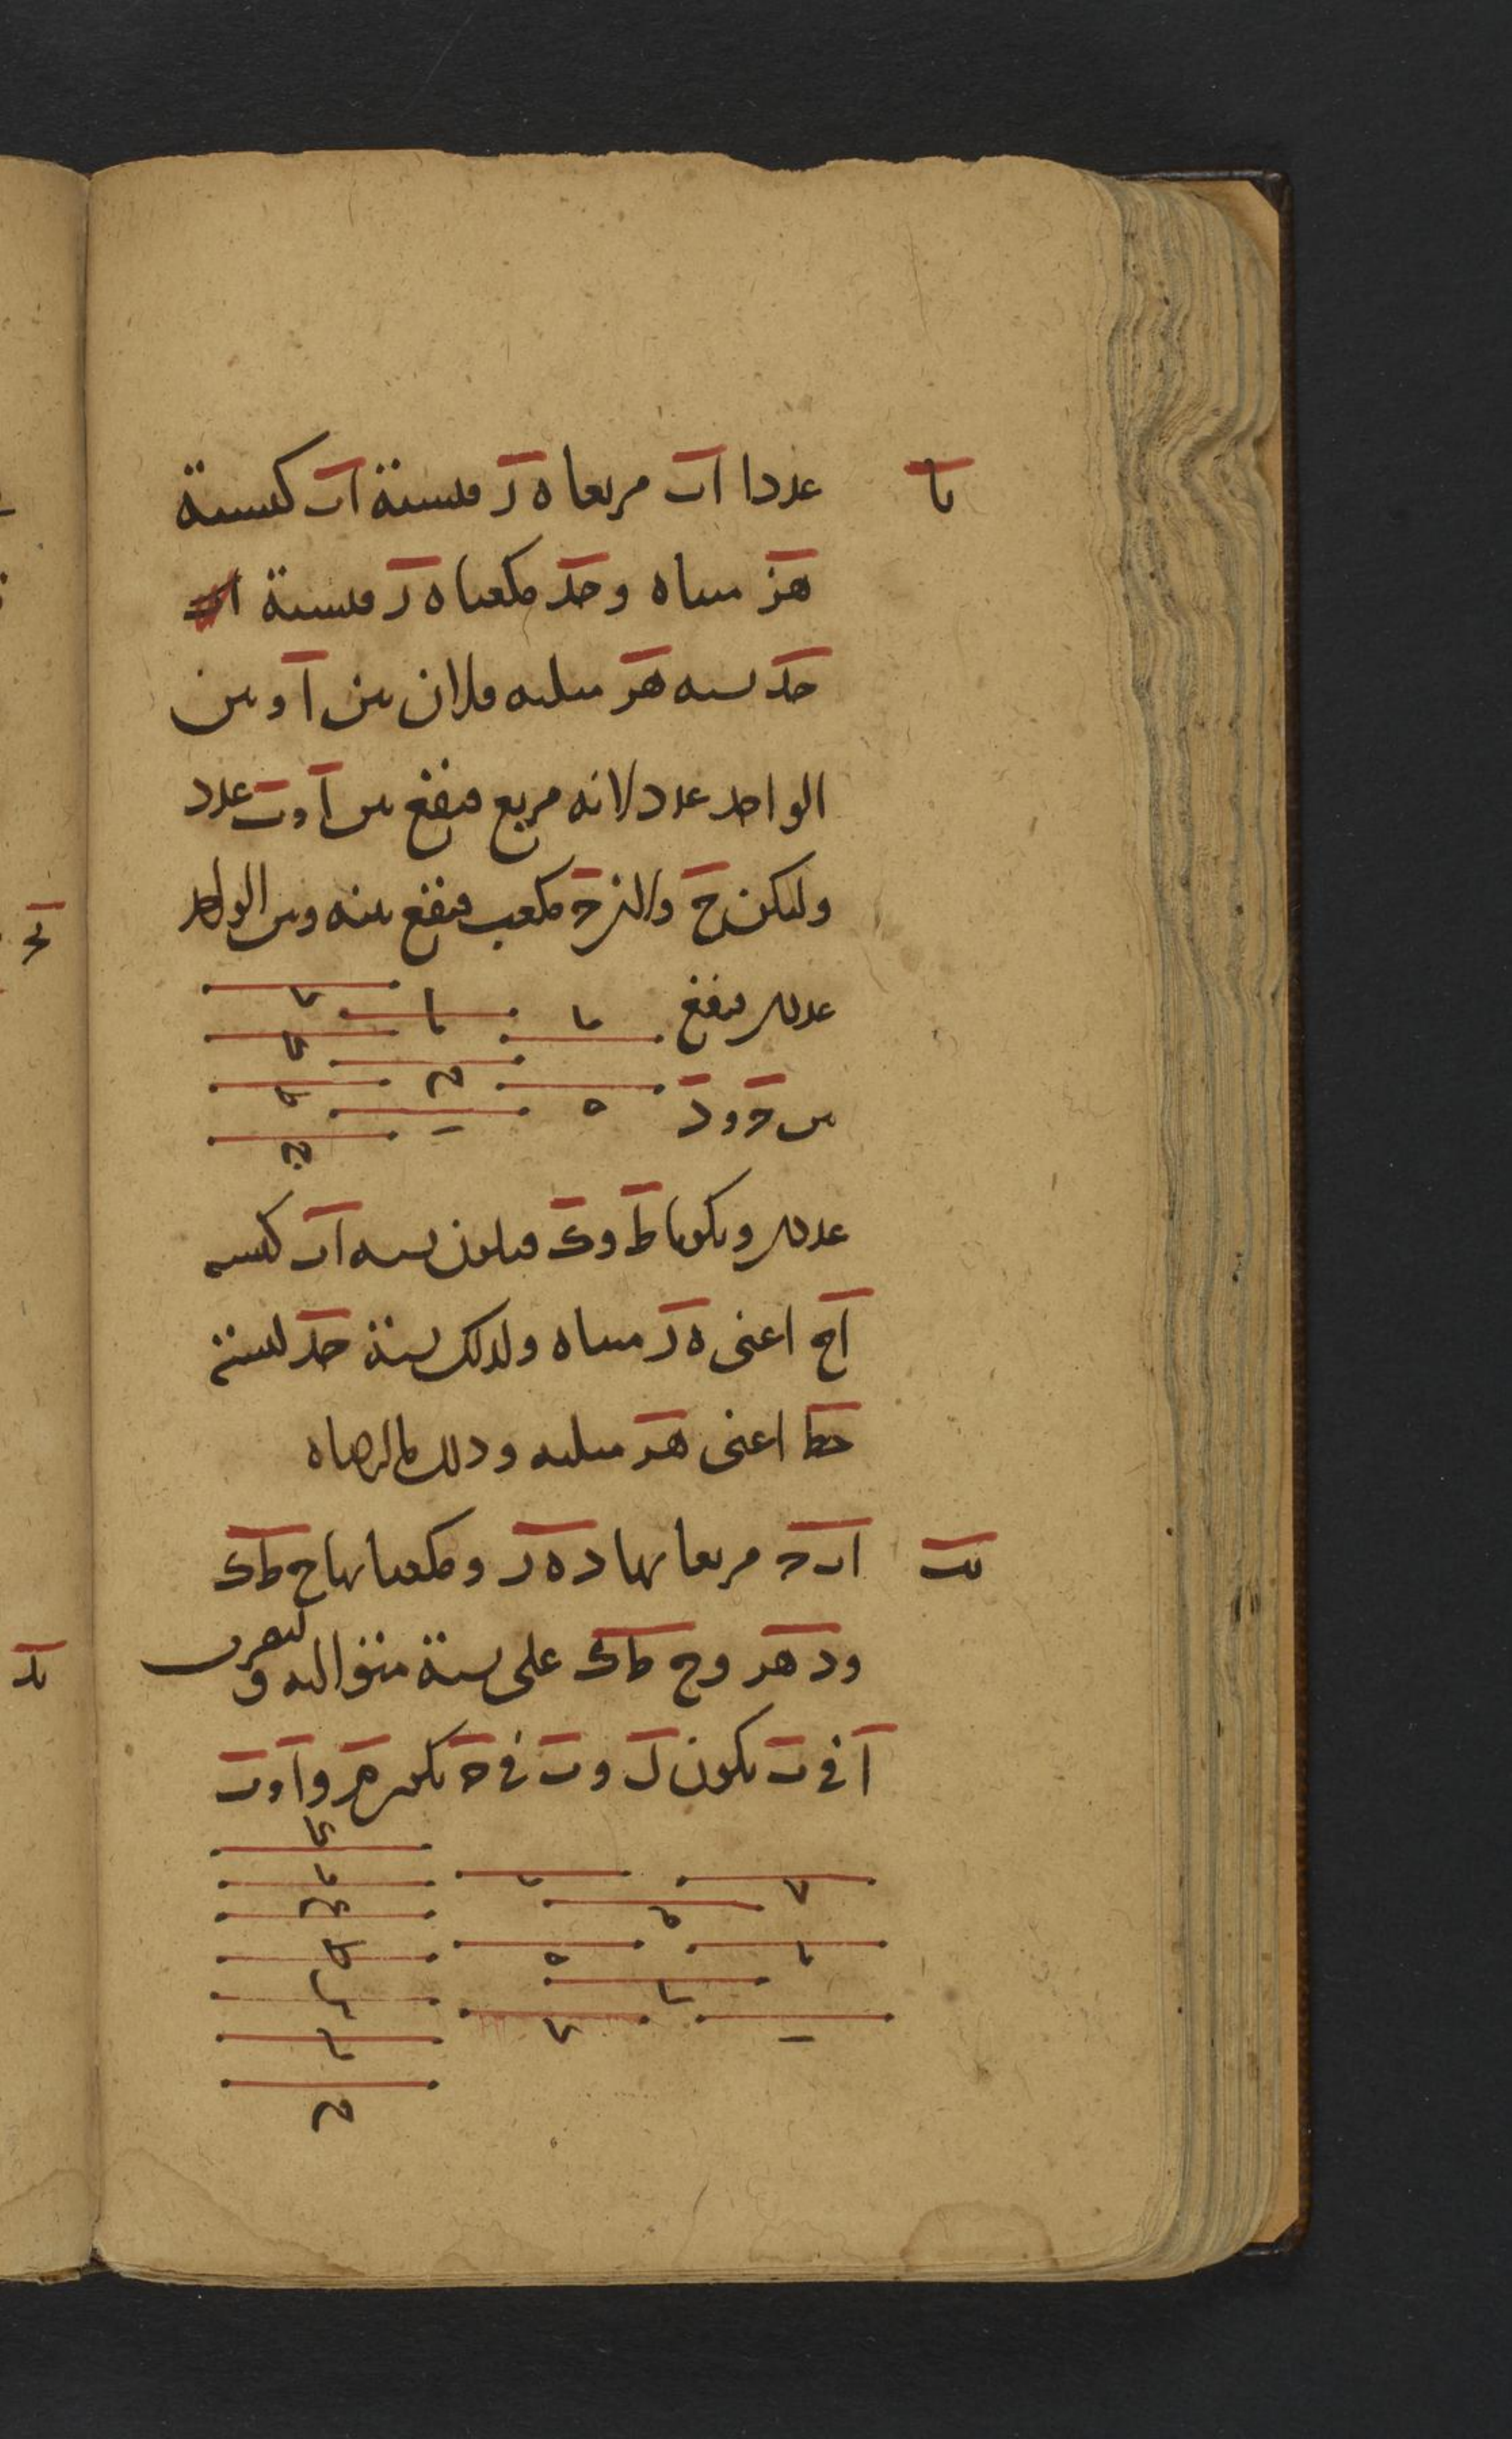 يا
عددا اب مربعا ه ر فنسبة اب كنسبة
هز مثناه وجد مكعبا ه ر فنسبة
جد نسبه هر مثلثه فلان بين ا وبين
الواحد عدد لانه مربع فيقع بين ا وب عدد
وليكن ح ولان ج مكعب فيقع بينه وبين الواحد
عددين فيقع
بين ج و د
عددين ويكونا ط وك فيكون نسبه اب كنسبه
اح اعنى ه ر مثناه ولذلك نسبة جد كنسبة
حط اعنى هر مثلثه وذلك ما اردناه
يب
ابج مربعاتها د ه ر ومكعباتها ح طك
ود هر وح طك على نسبة متواليه و
ليضرب
ا فى ب يكون ل وب فى ج يكن م وا وب